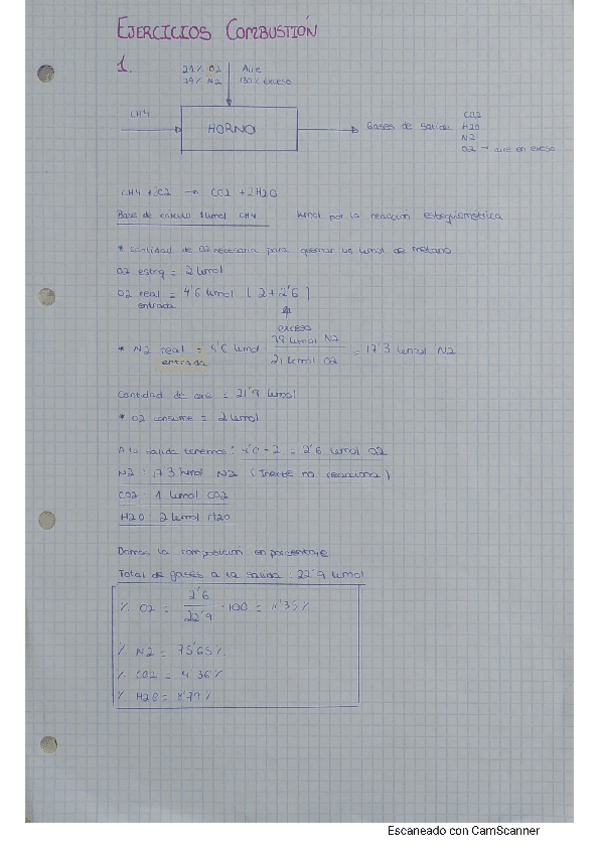 EJERCICIOS COMBUSTIÓN
1.
21% O2
79% N2
Aire
130% exceso
CH4
HORNO
Gases de salida
CO2
H2O
N2
O2 → aire en exceso
CH4 + 2O2 → CO2 + 2H2O
Base de cálculo 1 kmol CH4
kmol por la reacción estequiométrica
* Cantidad de O2 necesaria para quemar un kmol de metano
O2 esteq = 2 kmol
O2 real = 4'6 kmol [2+2'6]
entrada
exceso
* N2 real = 4'6 kmol 79 kmol N2 / 21 kmol O2 = 17'3 kmol N2
entrada
Cantidad de aire = 21'9 kmol
* O2 consume = 2 kmol
A la salida tenemos: 4'6 - 2 = 2'6 kmol O2
N2: 17'3 kmol N2 (Inerte no reacciona)
CO2: 1 kmol CO2
H2O: 2 kmol H2O
Damos la composición en porcentaje
Total de gases a la salida: 22'9 kmol
% O2 = 2'6 / 22'9 · 100 = 11'35%
% N2 = 75'65%
% CO2 = 4'36%
% H2O = 8'79%
Escaneado con CamScanner